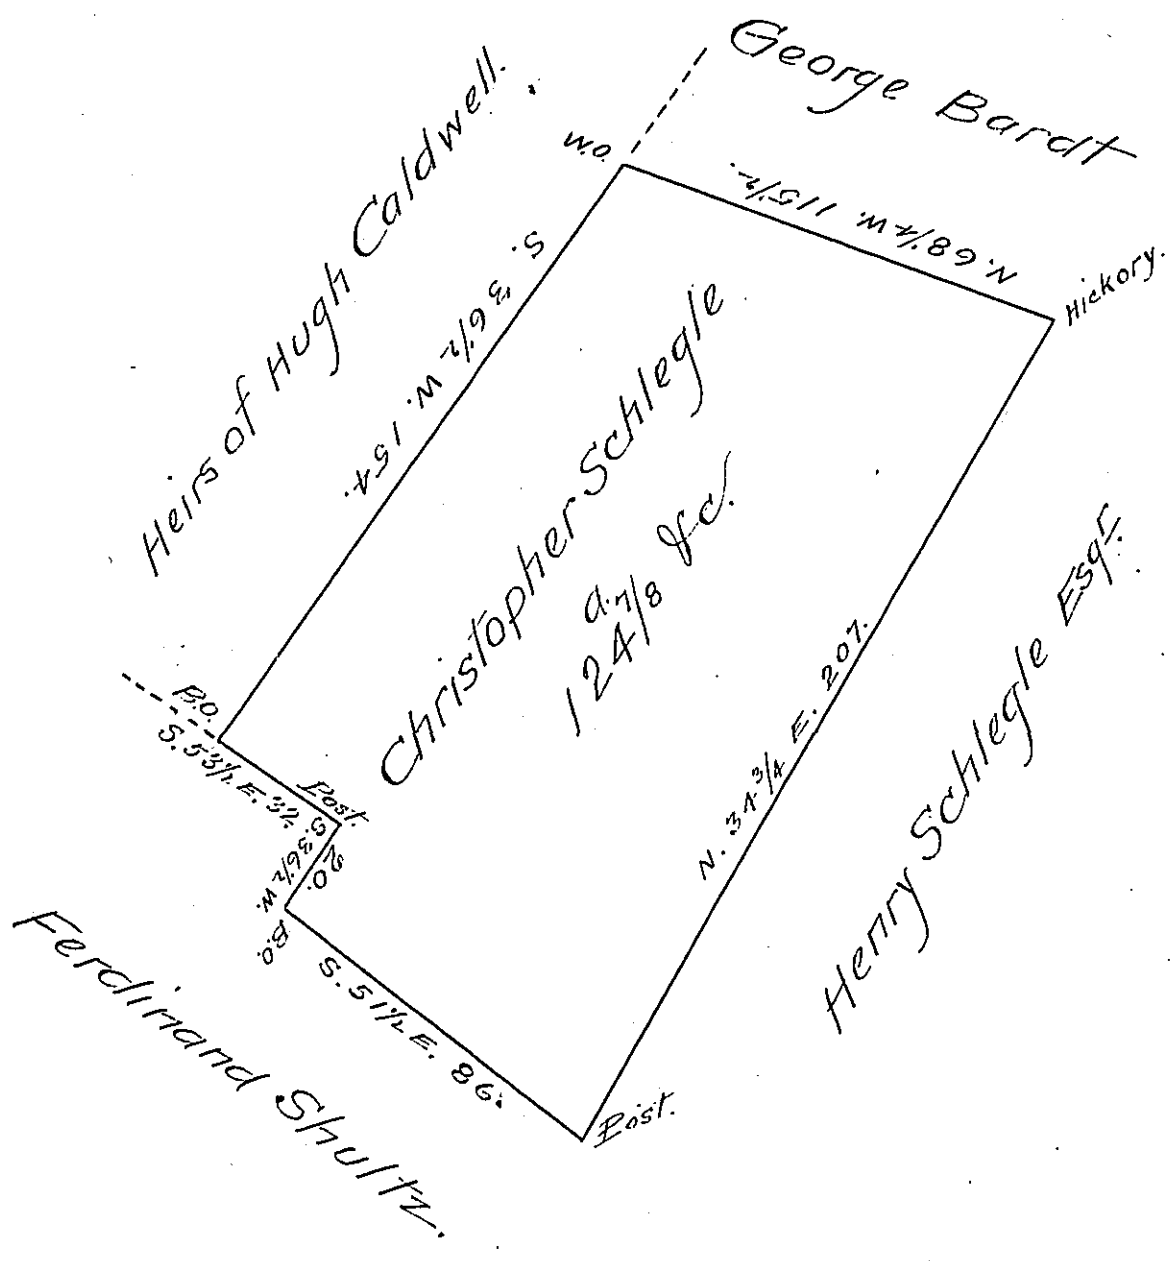 George Bardt
Heirs of Hugh Caldwell.
W.O.
N. 68¼ W. 115½.
Hickory.
S. 36½ W. 154.
Christopher Schlegle
a.
124 7/8 &c.
Henry Schlegle Esqr.
N. 34¾ E. 207.
B.O.
S. 53½ E. 32.
Post.
S. 36½ W.
20.
B.O.
S. 51½ E. 86.
Post.
Ferdinand Shultz.